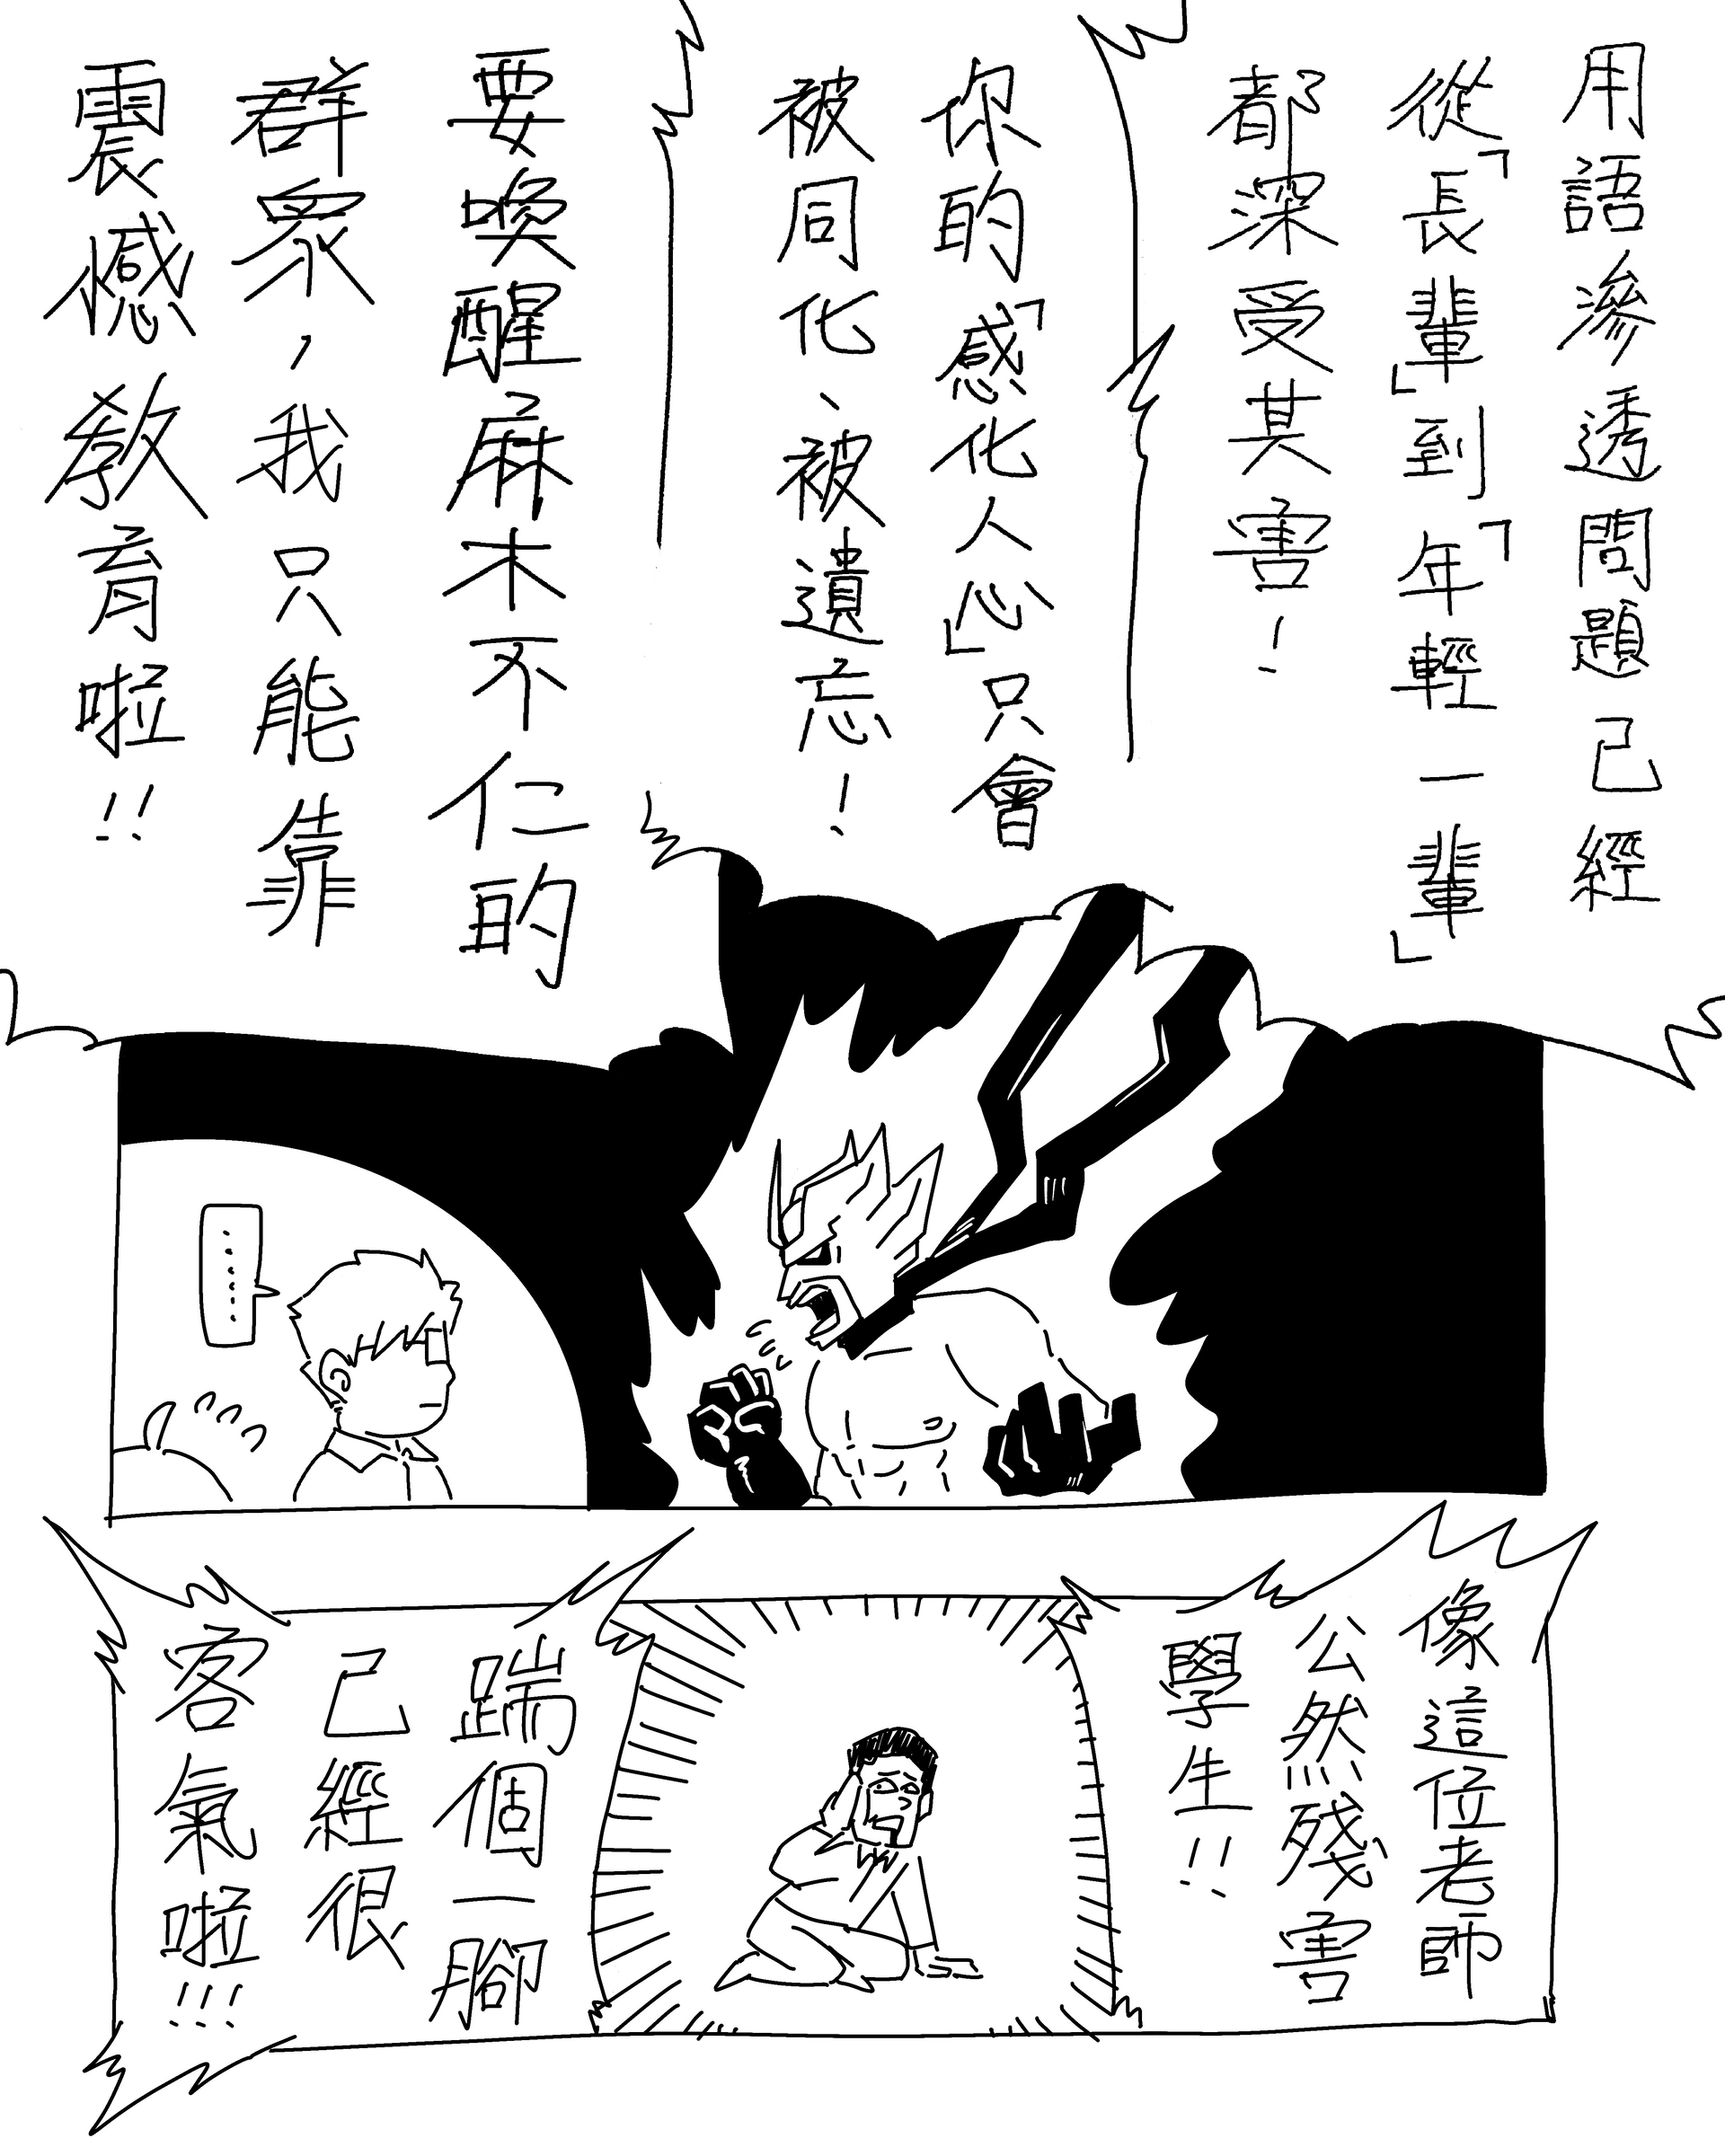 用語滲透問題已經
從「長輩」到「年輕一輩」
都深受其害！
你的「感化人心」只會
被同化、被遺忘！
要喚醒麻木不仁的
群眾，我只能靠
震憾教育啦！！
……
像這位老師
公然殘害
學生！！
踹個一腳
已經很
客氣啦！！！